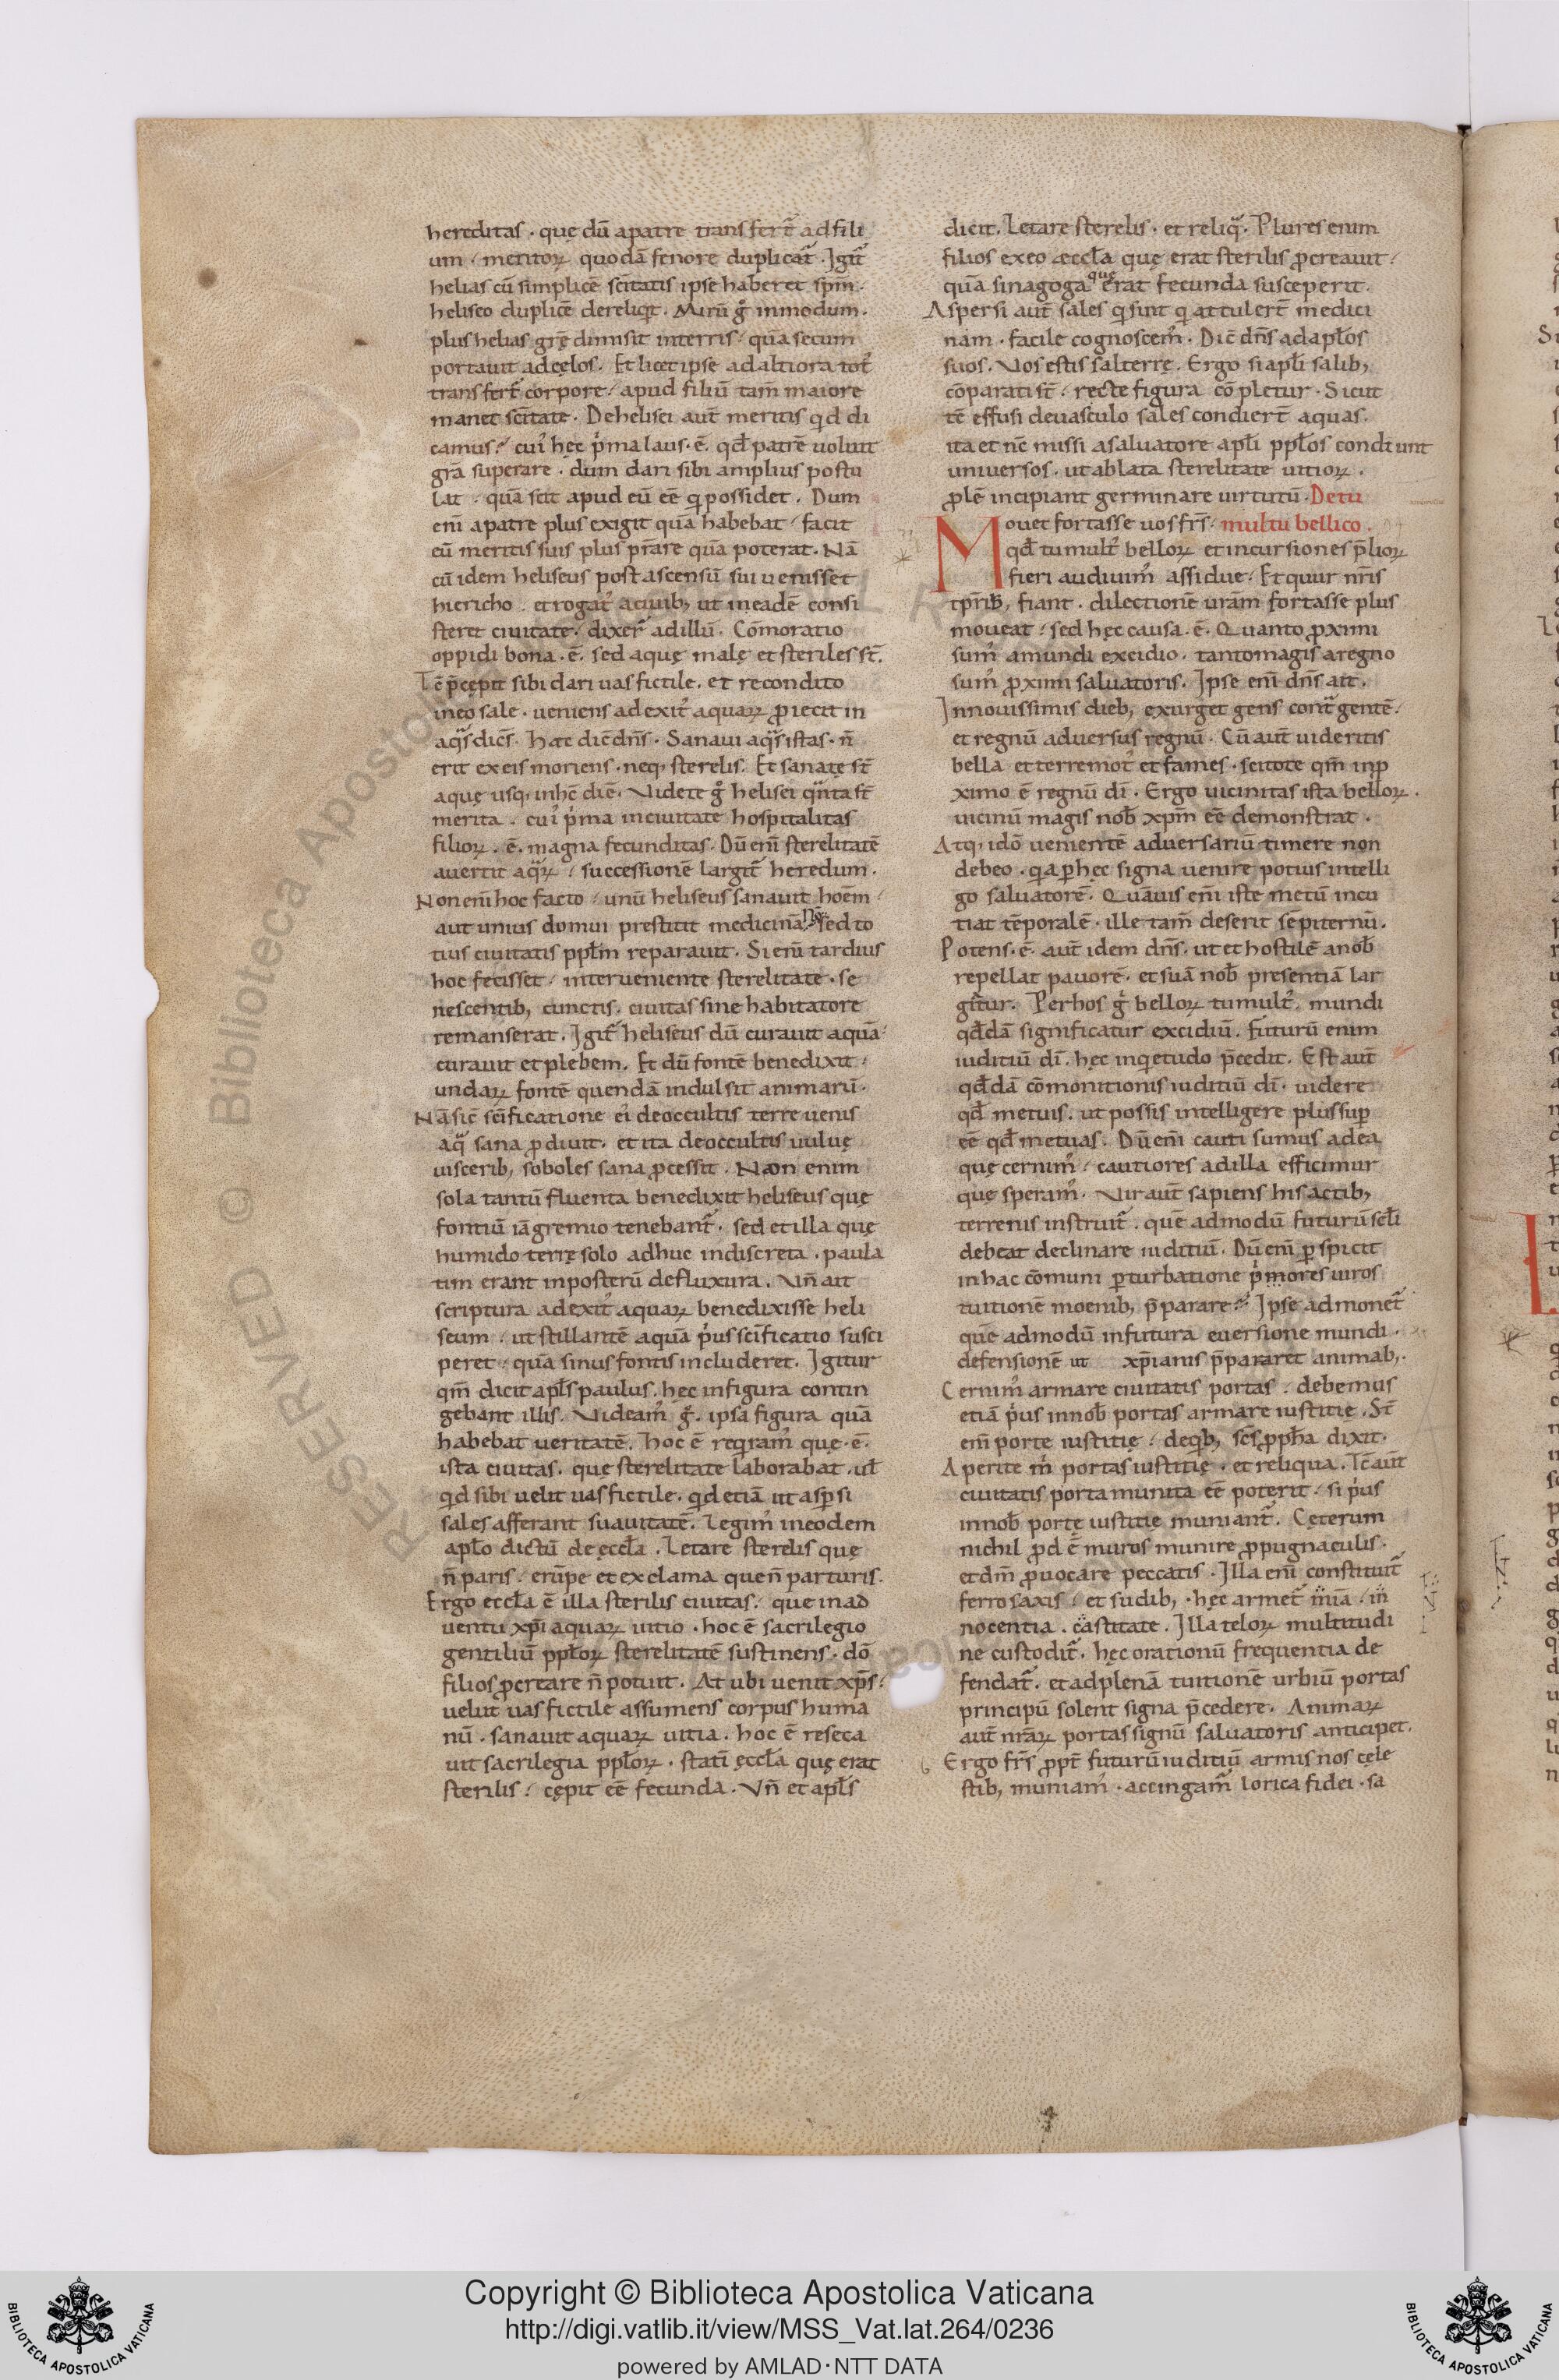 hereditas · quę dū apatre transfert̃ adfili
um / meritoꝝ quodā fenore duplicat̃ · Igit̃
helias cū simplicē sc̄itatis ipse haberet sp̄m ·
heliseo duplicē dereliqͥt · Mirū gͦ inmodum ·
plus helias grę̄ dimisit interris / quā secum
portauit adcęlos · Et licet ipse adaltiora totꝰ
transfert̃ corpore / apud filiū tam̄ maiore
manet sc̄itate · Dehelisei aut̄ meritis qͥd di
camus? cuiꝰ hęc pͥma laus · ē · qd̄ patrē uoluit
grā superare · dum dari sibi amplius postu
lat · quā scit apud eū eē qͥ possidet · Dum
eni apatre plus exigit quā habebat / facit
eū meritis suis plus prare quā poterat · Nā
cū idem heliseus post ascensū sui uenisset
hiericho · et rogatꝰ aciuib; ut ineadē consi
steret ciuitate / dixer̃ adillū · Cōmoratio
oppidi bona · ē · sed aquę malę et steriles st̄ ·
Tc̄ p̄cępit sibi dari uas fictile · et recondito
ineo sale · ueniens adexitꝰ aquaꝝ ꝓiecit in
aqͣs dicēs · Hæc dic̄ dn̄s · Sanaui aqͣs istas · n̄
erit exeis moriens · neq; sterelis · Et sanatę st̄
aquę usq; inhc̄ diē · Videte gͦ helisei qͣnta st̄
merita · cuiꝰ pͥma inciuitate hospitalitas
filioꝝ · ē · magna fecunditas · Dū eni sterelitatē
auertit aqͣꝝ / successionē largit̃ heredum ·
Non eni hoc facto / unū heliseus sanauit hoēm /
aut unius domui prestitit medicinā / sed to
tius ciuitatis ppl̄m reparauit · Si eni tardius
hoc fecisset / interueniente sterelitate · se
nescentib; cunctis · ciuitas sine habitatore
remanserat · Igit̃ heliseus dū curauit aquā /
curauit et plebem · Et dū fontē benedixit /
undaꝝ fontē quendā indulsit animarū ·
Nā sic̄ sc̄ificatione eiꝰ deoccultis terre uenis
aqͣ sana ꝓdiuit · et ita deoccultis uuluę
uiscerib; soboles sana ꝓcessit · Non enim
sola tantū fluenta benedixit heliseus quę
fontiū iā gremio tenebant̃ · sed et illa quę
humido terrę solo adhuc indiscreta · paula
tim erant inposterū defluxura · Vn̄ ait
scriptura adexitꝰ aquaꝝ benedixisse heli
seum / ut stillantē aquā pͥus sc̄ificatio susci
peret / quā sinus fontis includeret · Igitur
qm̄ dicit apl̄s paulus · hęc infigura contin
gebant illis · Videamꝰ gͦ · ipsa figura quā
habebat ueritatē · Hoc ē reqͥramꝰ quę · ē ·
ista ciuitas · quę sterelitate laborabat · ul̄
qͥd sibi uelit uas fictile · qͥd etiā ut asꝑsi
sales afferant suauitatē · Legimꝰ ineodem
apl̄o dictū de ęccl̄a · Letare sterelis quę
n̄ paris · erūpe et exclama que n̄ parturis ·
Ergo eccl̄a ē illa sterilis ciuitas / que inad
uentu xp̄i aquaꝝ uitio · hoc ē sacrilegio
gentiliū ppl̄oꝝ sterelitatē sustinens · dō
filios ꝓcreare n̄ potuit · At ubi uenit xp̄s /
uelut uas fictile assumens corpus huma
nū · sanauit aquaꝝ uitia · hoc ē reseca
uit sacrilegia ppl̄oꝝ · statī ęccl̄a quę erat
sterilis / cępit eē fecunda · Vn̄ et apl̄s
dicit · Letare sterelis · et reliqͣ · Plures enim
filios exeo æccl̄a quę erat sterilis ꝓcreauit /
quā sinagoga quę erat fecunda susceperit ·
Aspersi aut̄ sales qͥ sint qͥ attulert̄ medici
nam · facile cognoscemꝰ · Dic̄ dn̄s adapl̄os
suos · Vos estis sal terrę · Ergo si apl̄i salib;
cōparati st̄ / recte figura cōpletur · Sicut
tē effusi deuasculo sales condiert̄ aquas ·
ita et nc̄ missi asaluatore apl̄i ppl̄os condiunt
uniuersos · ut ablata sterelitate uitioꝝ ·
ꝓlē incipiant germinare uirtutū · Detu
Mouet fortasse uos fr̄s · multu bellico ·
qd̄ tumultꝰ belloꝝ et incursiones p̄lioꝝ
fieri audiuimꝰ assidue · Et quur nr̄is
tpr̄ib; fiant · dilectionē uram fortasse plus
moueat / sed hęc causa · ē · Quanto ꝓximi
sumꝰ amundi excidio · tantomagis aregno
sumꝰ ꝓximi saluatoris · Ipse eni dn̄s ait ·
Innouissimis dieb; exurget gens contͣ gentē /
et regnū aduersus regnū · Cū aut̄ uideritis
bella et terremotꝰ et fames · scitote qm̄ inꝓ
ximo ē regnū dī · Ergo uicinitas ista belloꝝ ·
uicinū magis nob̄ xpm̄ eē demonstrat ·
Atq; idō uenientē aduersariū timere non
debeo · qͥa ꝑ hęc signa uenire potius intelli
go saluatorē · Quāuis eni iste metū incu
tiat tēporalē · ille tam̄ deserit sēpiternū ·
Potens · ē · aut̄ idem dn̄s · ut et hostilē anob̄
repellat pauorē · et suā nob̄ presentiā lar
gitur · Per hos gͦ belloꝝ tumultꝰ · mundi
qd̄dā significatur excidiū · Futurū enim
iuditiū dī · hęc inqͥetudo p̄cedit · Est aut̄
qd̄dā cōmonitionis iuditiū dī · uidere
qd̄ metuis · ut possis intelligere plus suꝑ
eē qd̄ metuas · Dū eni cauti sumus adea
quę cernimꝰ / cautiores adilla efficimur
quę speramꝰ · Vir aut̄ sapiens his actib;
terrenis instruit̃ · quē admodū futurū scl̄i
debeat declinare iuditiū · Dū eni ꝑspicit
inhac cōmuni ꝑturbatione pͥmores uiros
tuitionē moenib; p̄parare · Ipse admonet̃
quē admodū infutura euersione mundi ·
defensionē ut xp̄ianis p̄pararet animab; ·
Cernimꝰ armare ciuitatis portas · debemus
etiā pͥus innob̄ portas armare iustitię · St̄
eni porte iustitię / deqͥb; sc̄s ꝓph̄a dixit ·
Aperite mͥ portas iustitię · et reliqua · Tc̄ aut̄
ciuitatis porta munita eē poterit · si pͥus
innob̄ portę iustitię muniant̃ · Cęterum
nichil ꝓd ē muros munire ꝓpugnaculis ·
et dm̄ ꝓuocare peccatis · Illa eni constituit̃
ferro saxis / et sudib; · hęc armet̃ mīa / in
nocentia · castitate · Illa teloꝝ multitudi
ne custodit̃ · hęc orationū frequentia de
fendat̃ · et adplenā tuitionē urbiū portas
principū solent signa p̄cedere · Animaꝝ
aut̄ nr̄aꝝ portas signū saluatoris anticipet ·
Ergo fr̄s ꝓpt̄ futurū iuditiū armis nos cęle
stib; muniamꝰ · accingam̃ lorica fidei · sa
Copyright © Biblioteca Apostolica Vaticana
http://digi.vatlib.it/view/MSS_Vat.lat.264/0236
powered by AMLAD·NTT DATA